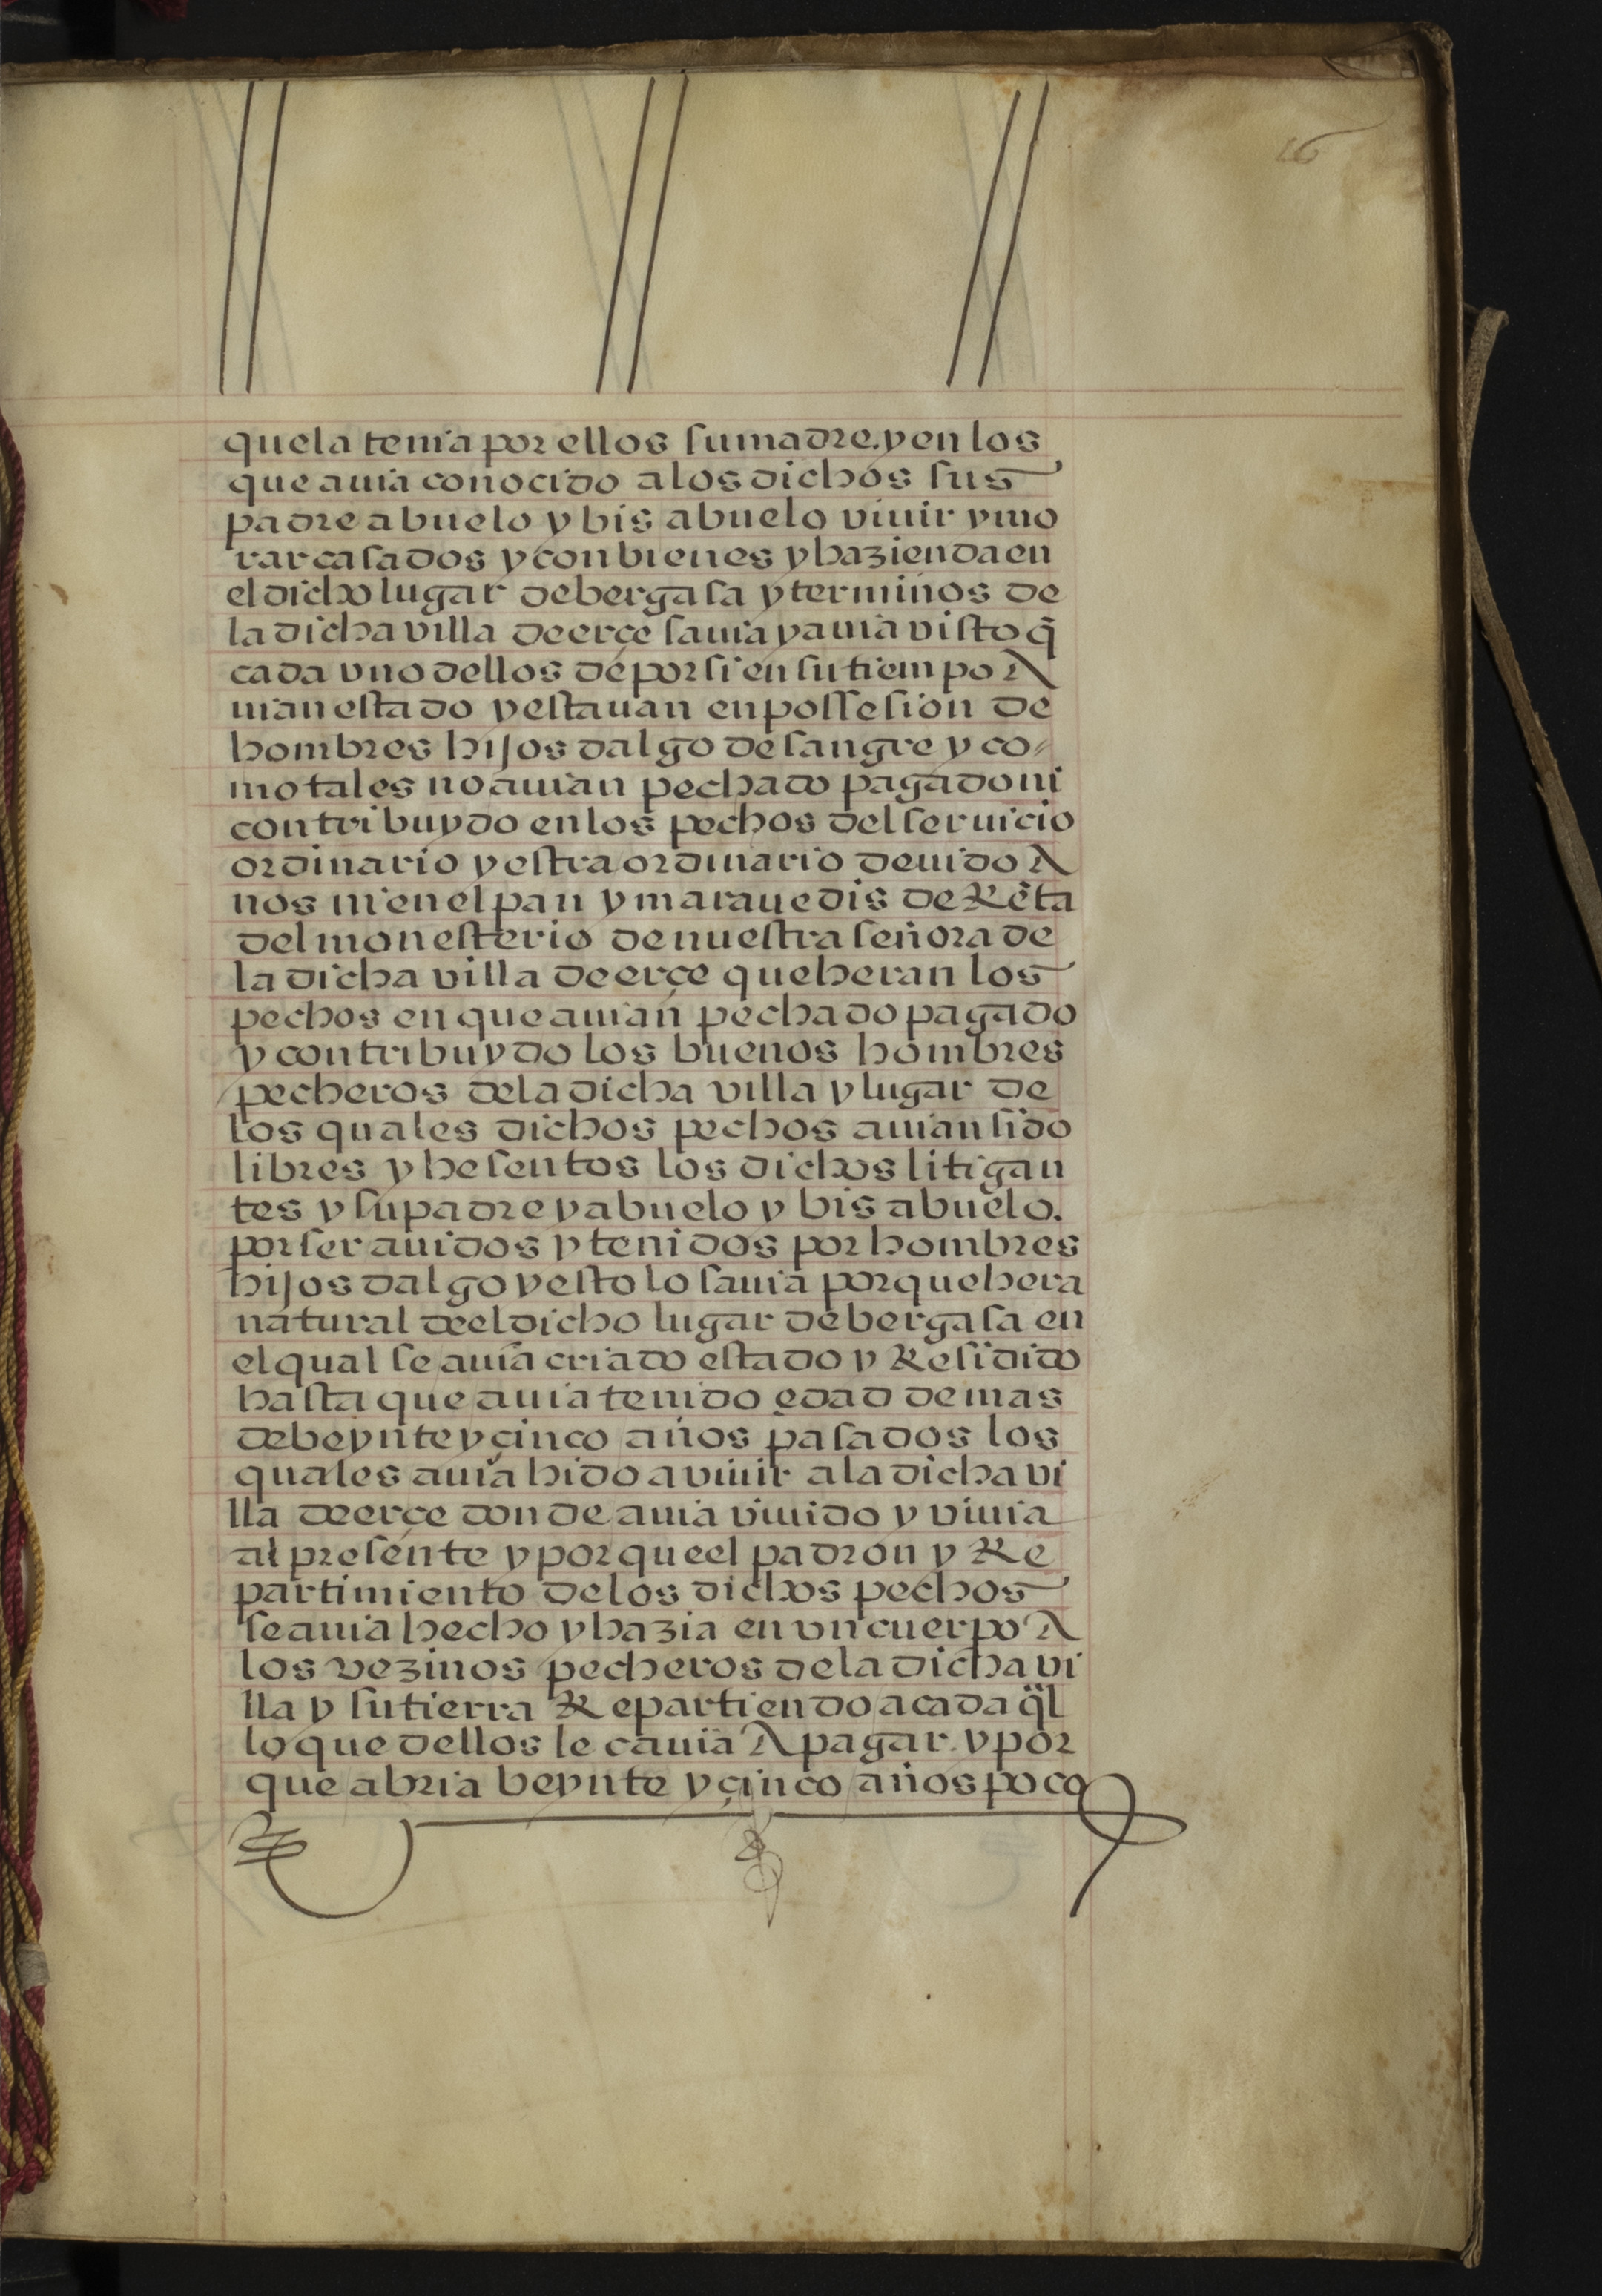 16
que la tenia por ellos su madre. y en los
que auia conocido a los dichos sus
padre abuelo y bis abuelo viuir y mo
rar casados y con bienes y hazienda en
el dicho lugar de bergasa y terminos de
la dicha villa de erçe sauia y auia visto q̃
cada vno dellos de por si en su tiempo A
uian estado y estauan en possesion de
hombres hijos dalgo de sangre y co//
mo tales no auian pechado pagado ni
contribuydo en los pechos del seruicio
ordinario y estraordinario deuido A
nos ni en el pan y marauedis de Rẽta
del monesterio de nuestra señora de
la dicha villa de erçe que heran los
pechos en que auian pechado pagado
y contribuydo los buenos hombres
pecheros de la dicha villa y lugar de
los quales dichos pechos auian sido
libres y hesentos los dichos litigan
tes y su padre y abuelo y bis abuelo.
por ser auidos y tenidos por hombres
hijos dalgo y esto lo sauia porque hera
natural de el dicho lugar de bergasa en
el qual se auia criado estado y Residido
hasta que auia tenido edad de mas
de beynte y çinco años pasados los
quales auia hido a viuir a la dicha vi
lla de erçe donde auia viuido y viuia
al presente y porque el padron y Re
partimiento de los dichos pechos
se auia hecho y hazia en vn cuerpo A
los vezinos pecheros de la dicha vi
lla y su tierra Repartiendo a cada q̃l
lo que dellos le cauia A pagar. y por
que abria beynte y çinco años poco